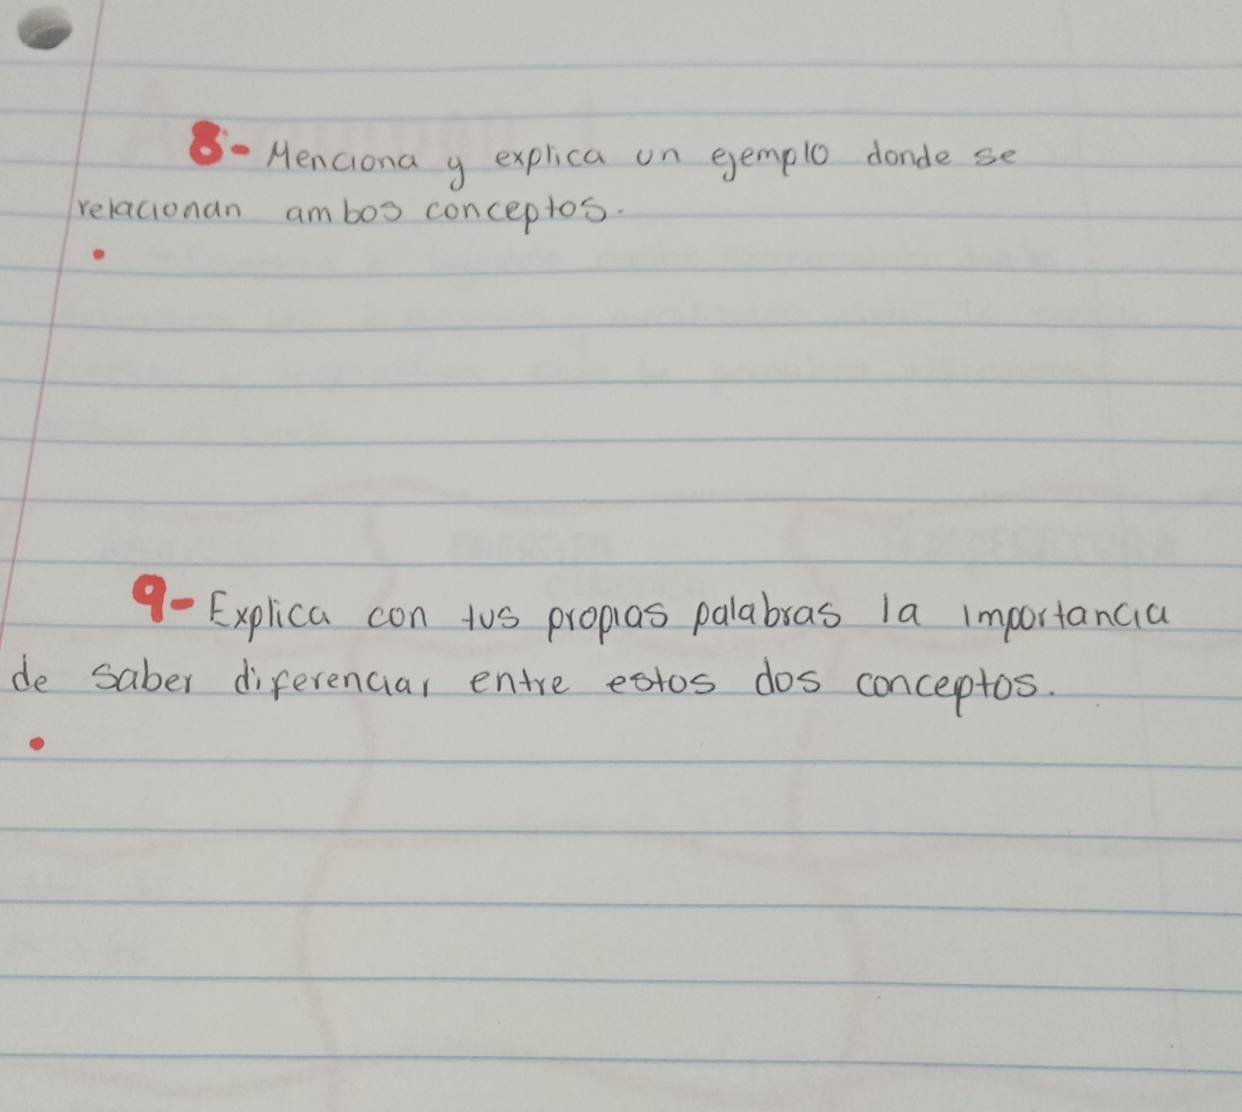 8- Menciona y explica un ejemplo donde se
relacionan ambos conceptos.
9- Explica con tus propias palabras la importancia
de saber diferenciar entre estos dos conceptos.